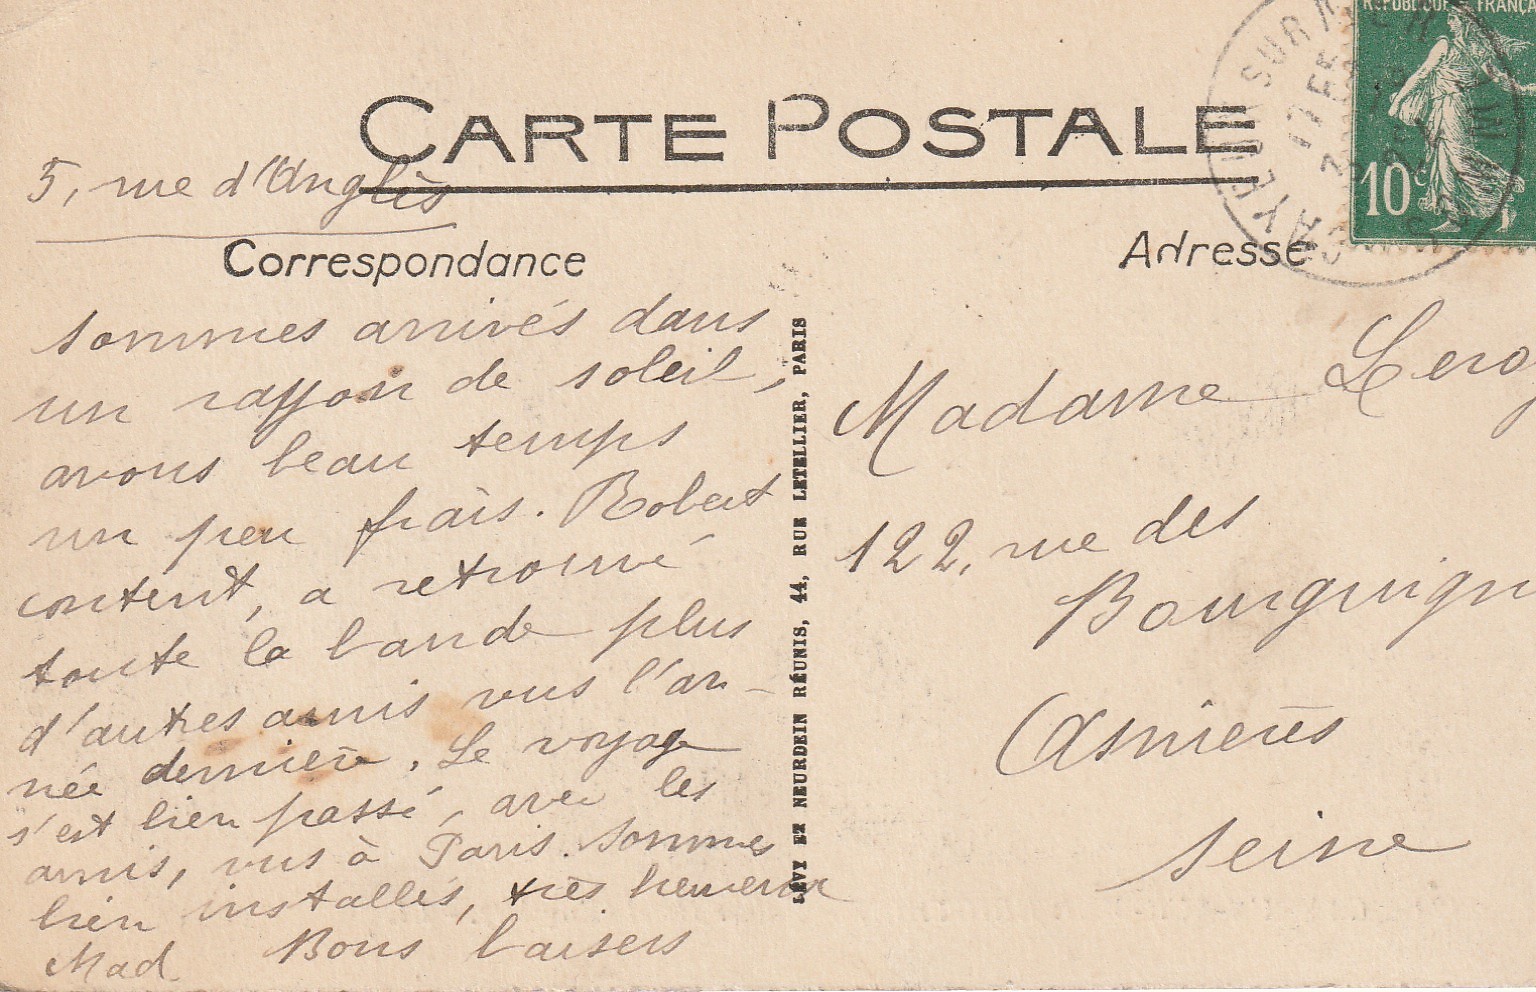 CARTE POSTALE
5, rue d'Anglès
Correspondance
sommes arrivés dans
un rayon de soleil,
avons beau temps
un peu frais. Robert
content, a retrouvé
toute la bande plus
d'autres amis vus l'an-
née dernière. Le voyage
s'est bien passé, avec les
amis, vus à Paris. Sommes
bien installés, très heureux
Bons baisers
Mad
LÉVY ET NEURDEIN RÉUNIS, 44, RUE LETELLIER, PARIS
Adresse
RÉPUBLIQUE FRANÇA
10c
CAYEUX SUR MER
SOMME
Madame Leroy
122, rue des
Bourguign
Asnières
Seine